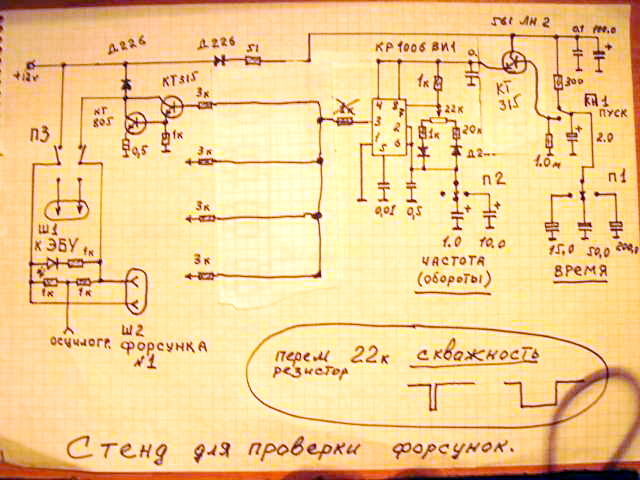 Д226
Д226
51
561 ЛН 2
+12v
КТ315
КР1006 ВИ1
0,1
100.0
КТ
805
3к
1к
КТ
315
300
КН1
ПУСК
П3
0,5
1к
3к
4
8
7
3
2
1
6
5
22к
1к
20к
2.0
3к
Д2
1.0м
П2
П1
3к
0,01
0,5
1.0
10,0
15,0
50,0
200,0
Ш1
к ЭБУ
1к
3к
ЧАСТОТА
(обороты)
ВРЕМЯ
1к
1к
Ш2
осцилогр.
форсунка
№1
перем 22к скважность
резистор
Стенд для проверки форсунок.